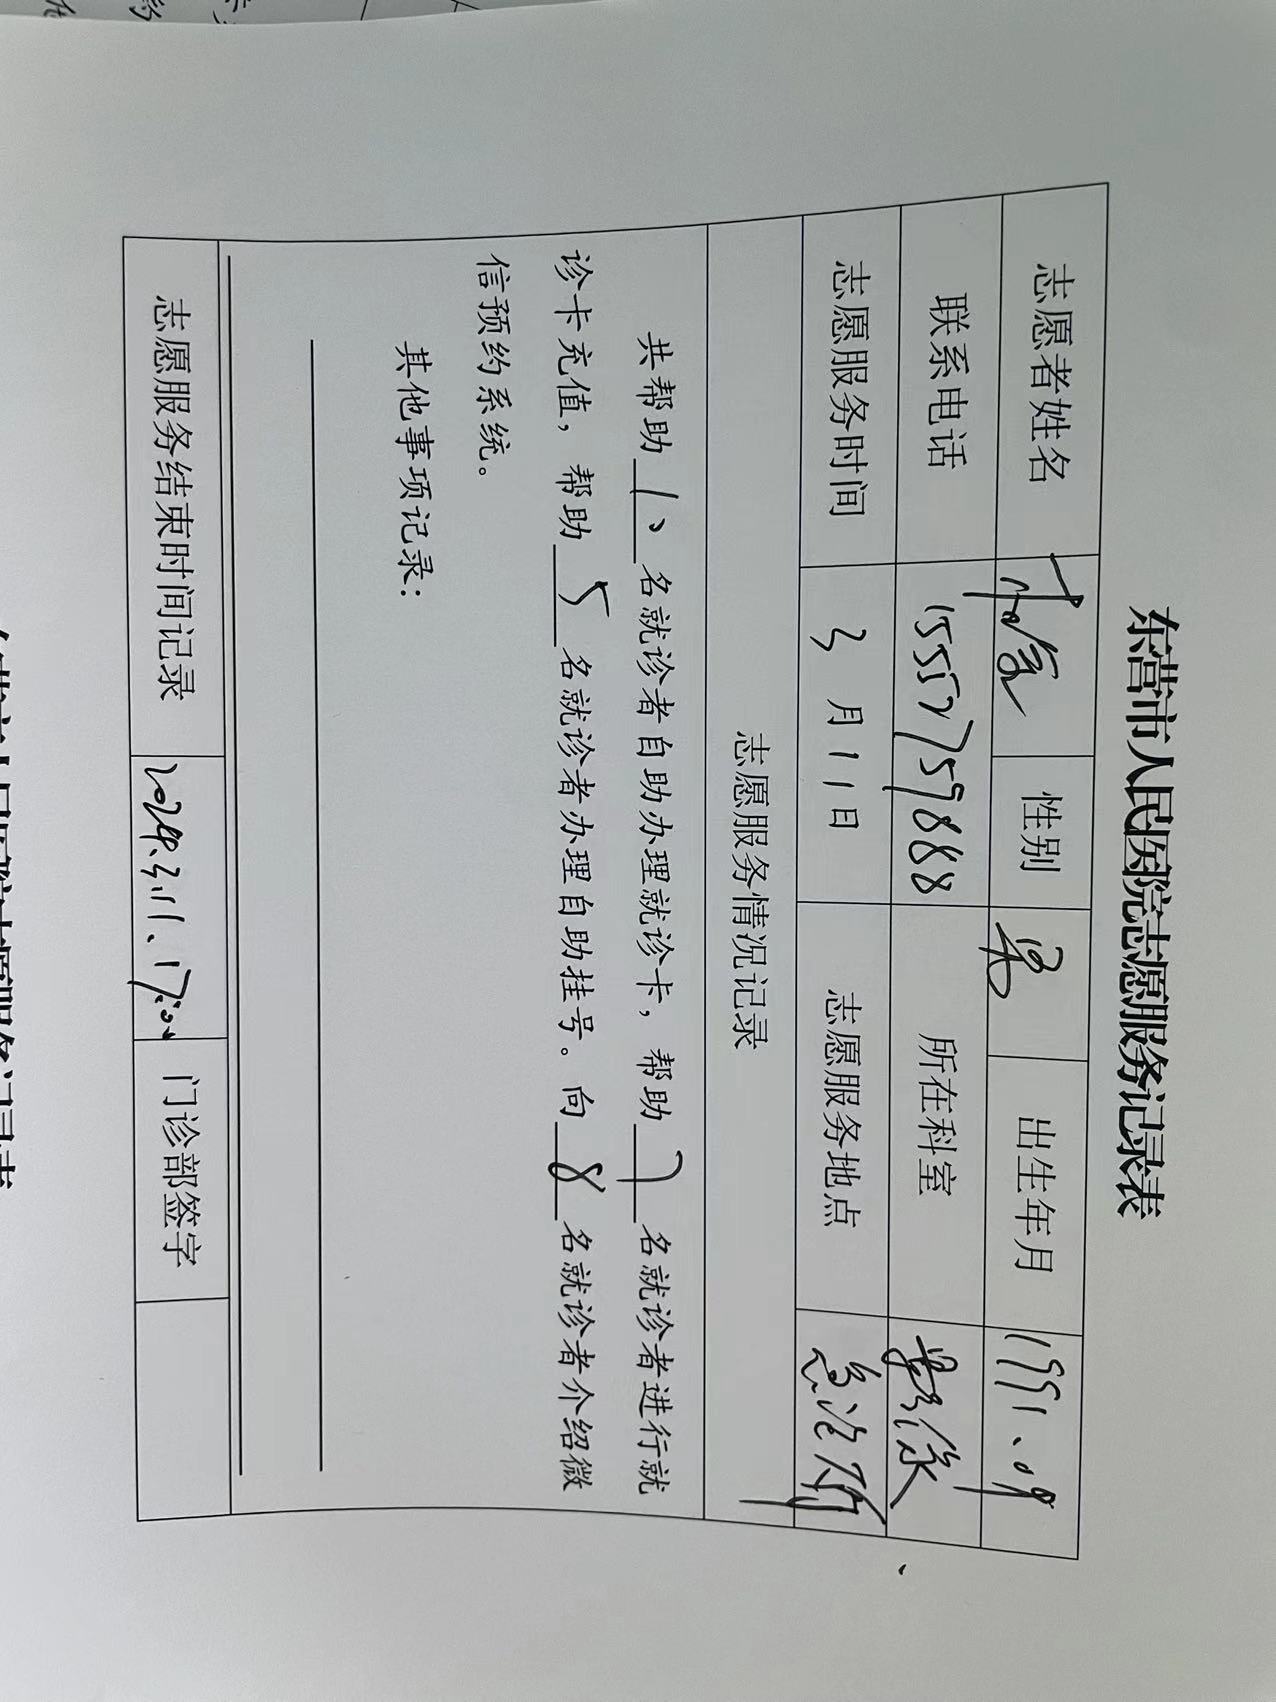 东营市人民医院志愿服务记录表
志愿者姓名 性别 男 出生年月 1991.09
联系电话 15527759888 所在科室
志愿服务时间 3月11日 志愿服务地点
志愿服务情况记录
共帮助10名就诊者自助办理就诊卡，帮助7名就诊者进行就
诊卡充值，帮助5名就诊者办理自助挂号。向8名就诊者介绍微
信预约系统。
其他事项记录：
志愿服务结束时间记录 2024.3.11、17:00 门诊部签字